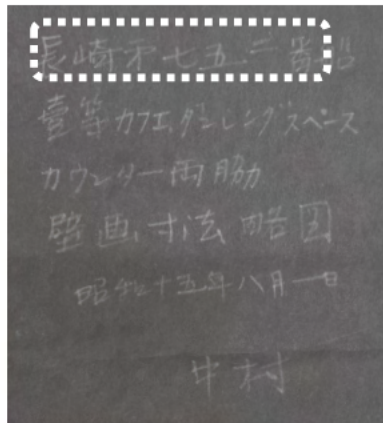 長崎第七五二番船
壹等カフエ,ダンシングスペース
カウンター両脇
壁画寸法略図
昭和十五年八月一日
中村